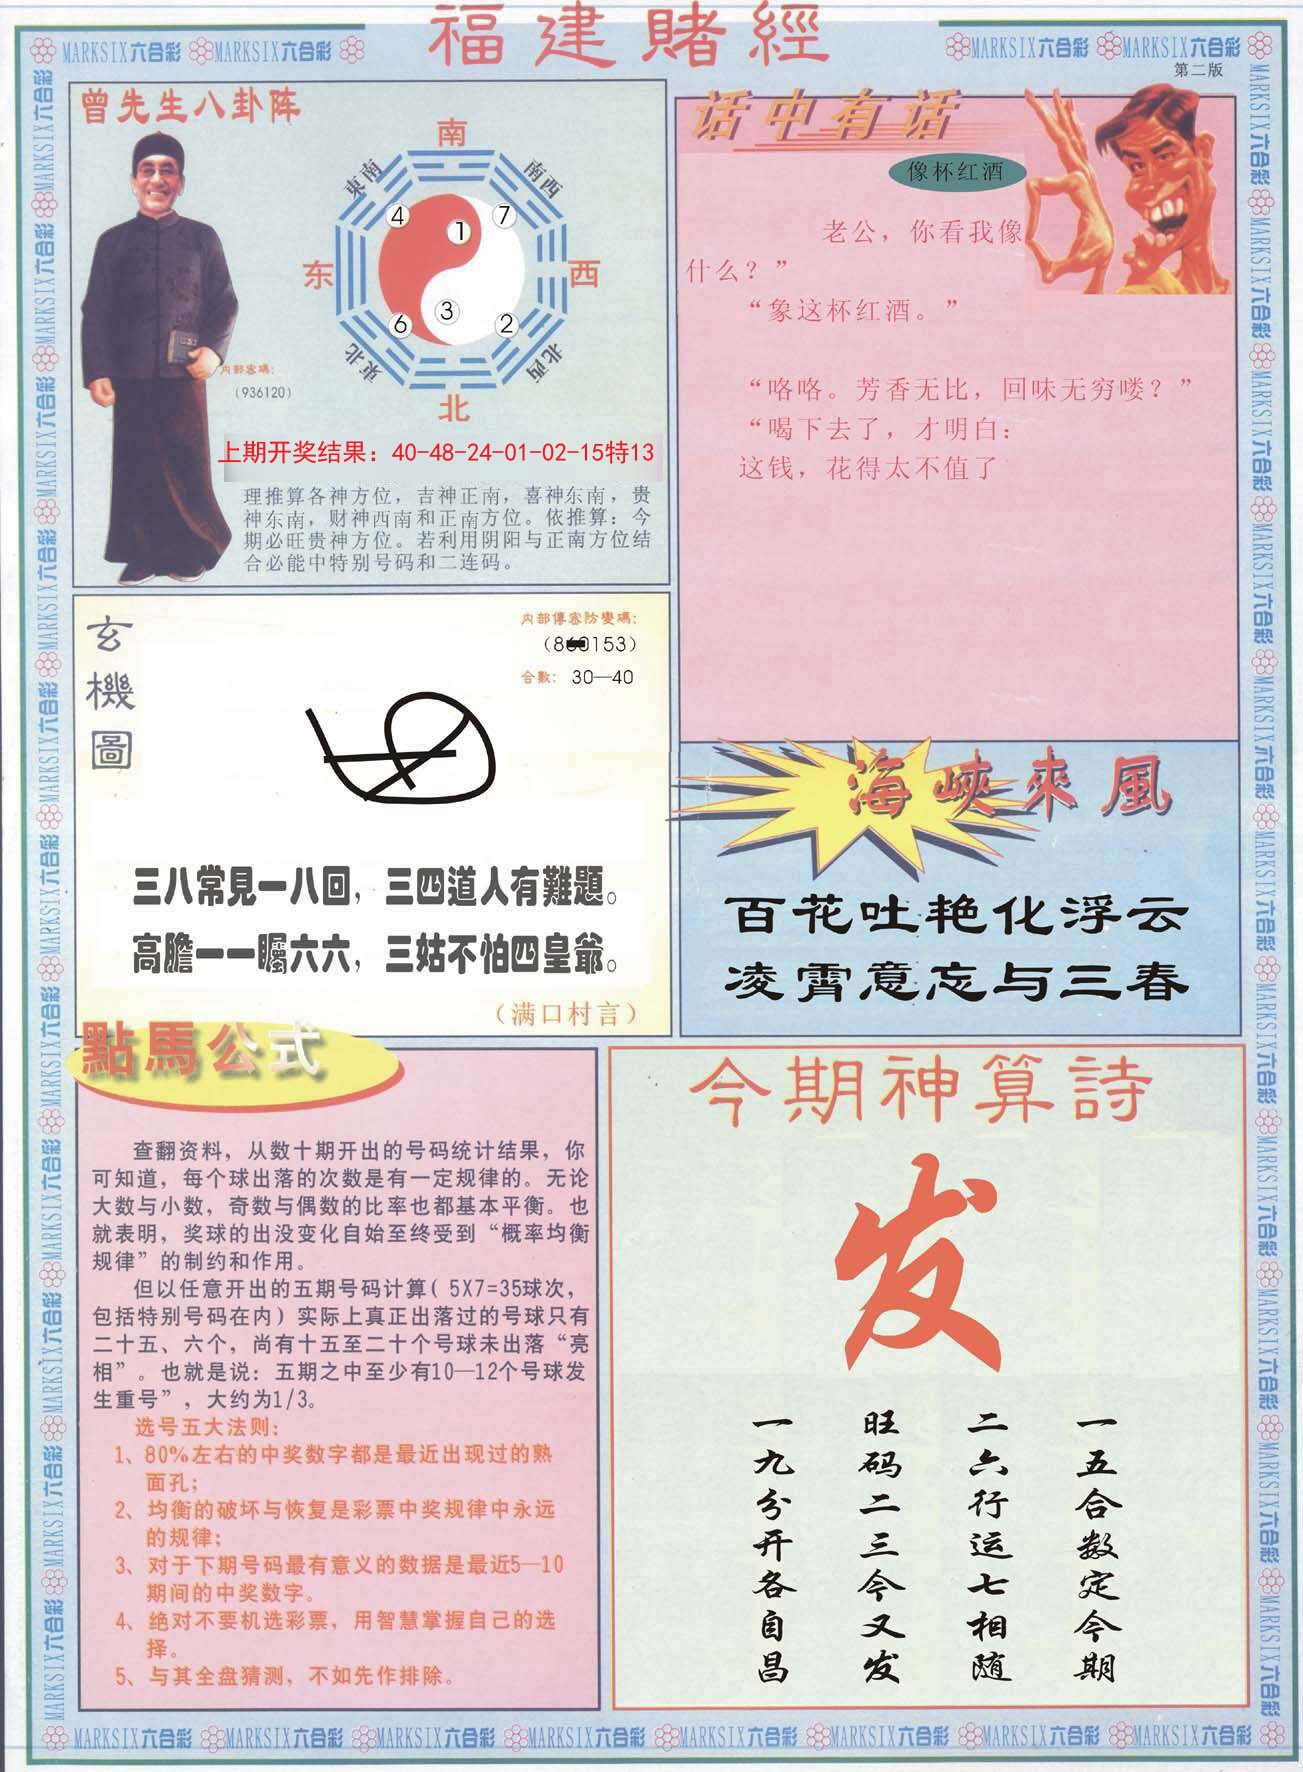 福建賭經
MARKSIX六合彩 MARKSIX六合彩
MARKSIX六合彩 MARKSIX六合彩
第二版
曾先生八卦阵
南
東南
南西
4
1
7
东
西
6
3
2
東北
北西
北
内部密碼：
（936120）
上期开奖结果：40-48-24-01-02-15特13
理推算各神方位，吉神正南，喜神东南，贵
神东南，财神西南和正南方位。依推算：今
期必旺贵神方位。若利用阴阳与正南方位结
合必能中特别号码和二连码。
话中有话
像杯红酒
老公，你看我像
什么？”
“象这杯红酒。”
“咯咯。芳香无比，回味无穷喽？”
“喝下去了，才明白：
这钱，花得太不值了
玄機圖
内部傳密防變碼：
（8 0153）
合數： 30—40
三八常見一八回，三四道人有難題。
高膽一一矚六六，三姑不怕四皇爺。
（满口村言）
海峽來風
百花吐艳化浮云
凌霄意忘与三春
點馬公式
查翻资料，从数十期开出的号码统计结果，你
可知道，每个球出落的次数是有一定规律的。无论
大数与小数，奇数与偶数的比率也都基本平衡。也
就表明，奖球的出没变化自始至终受到“概率均衡
规律”的制约和作用。
但以任意开出的五期号码计算（5X7=35球次，
包括特别号码在内）实际上真正出落过的号球只有
二十五、六个，尚有十五至二十个号球未出落“亮
相”。也就是说：五期之中至少有10—12个号球发
生重号”，大约为1/3。
选号五大法则：
1、80%左右的中奖数字都是最近出现过的熟
面孔；
2、均衡的破坏与恢复是彩票中奖规律中永远
的规律；
3、对于下期号码最有意义的数据是最近5—10
期间的中奖数字。
4、绝对不要机选彩票，用智慧掌握自己的选
择。
5、与其全盘猜测，不如先作排除。
今期神算詩
发
一五合数定今期
二六行运七相随
旺码二三今又发
一九分开各自昌
MARKSIX六合彩 MARKSIX六合彩 MARKSIX六合彩 MARKSIX六合彩 MARKSIX六合彩 MARKSIX六合彩 MARKSIX六合彩 MARKSIX六合彩